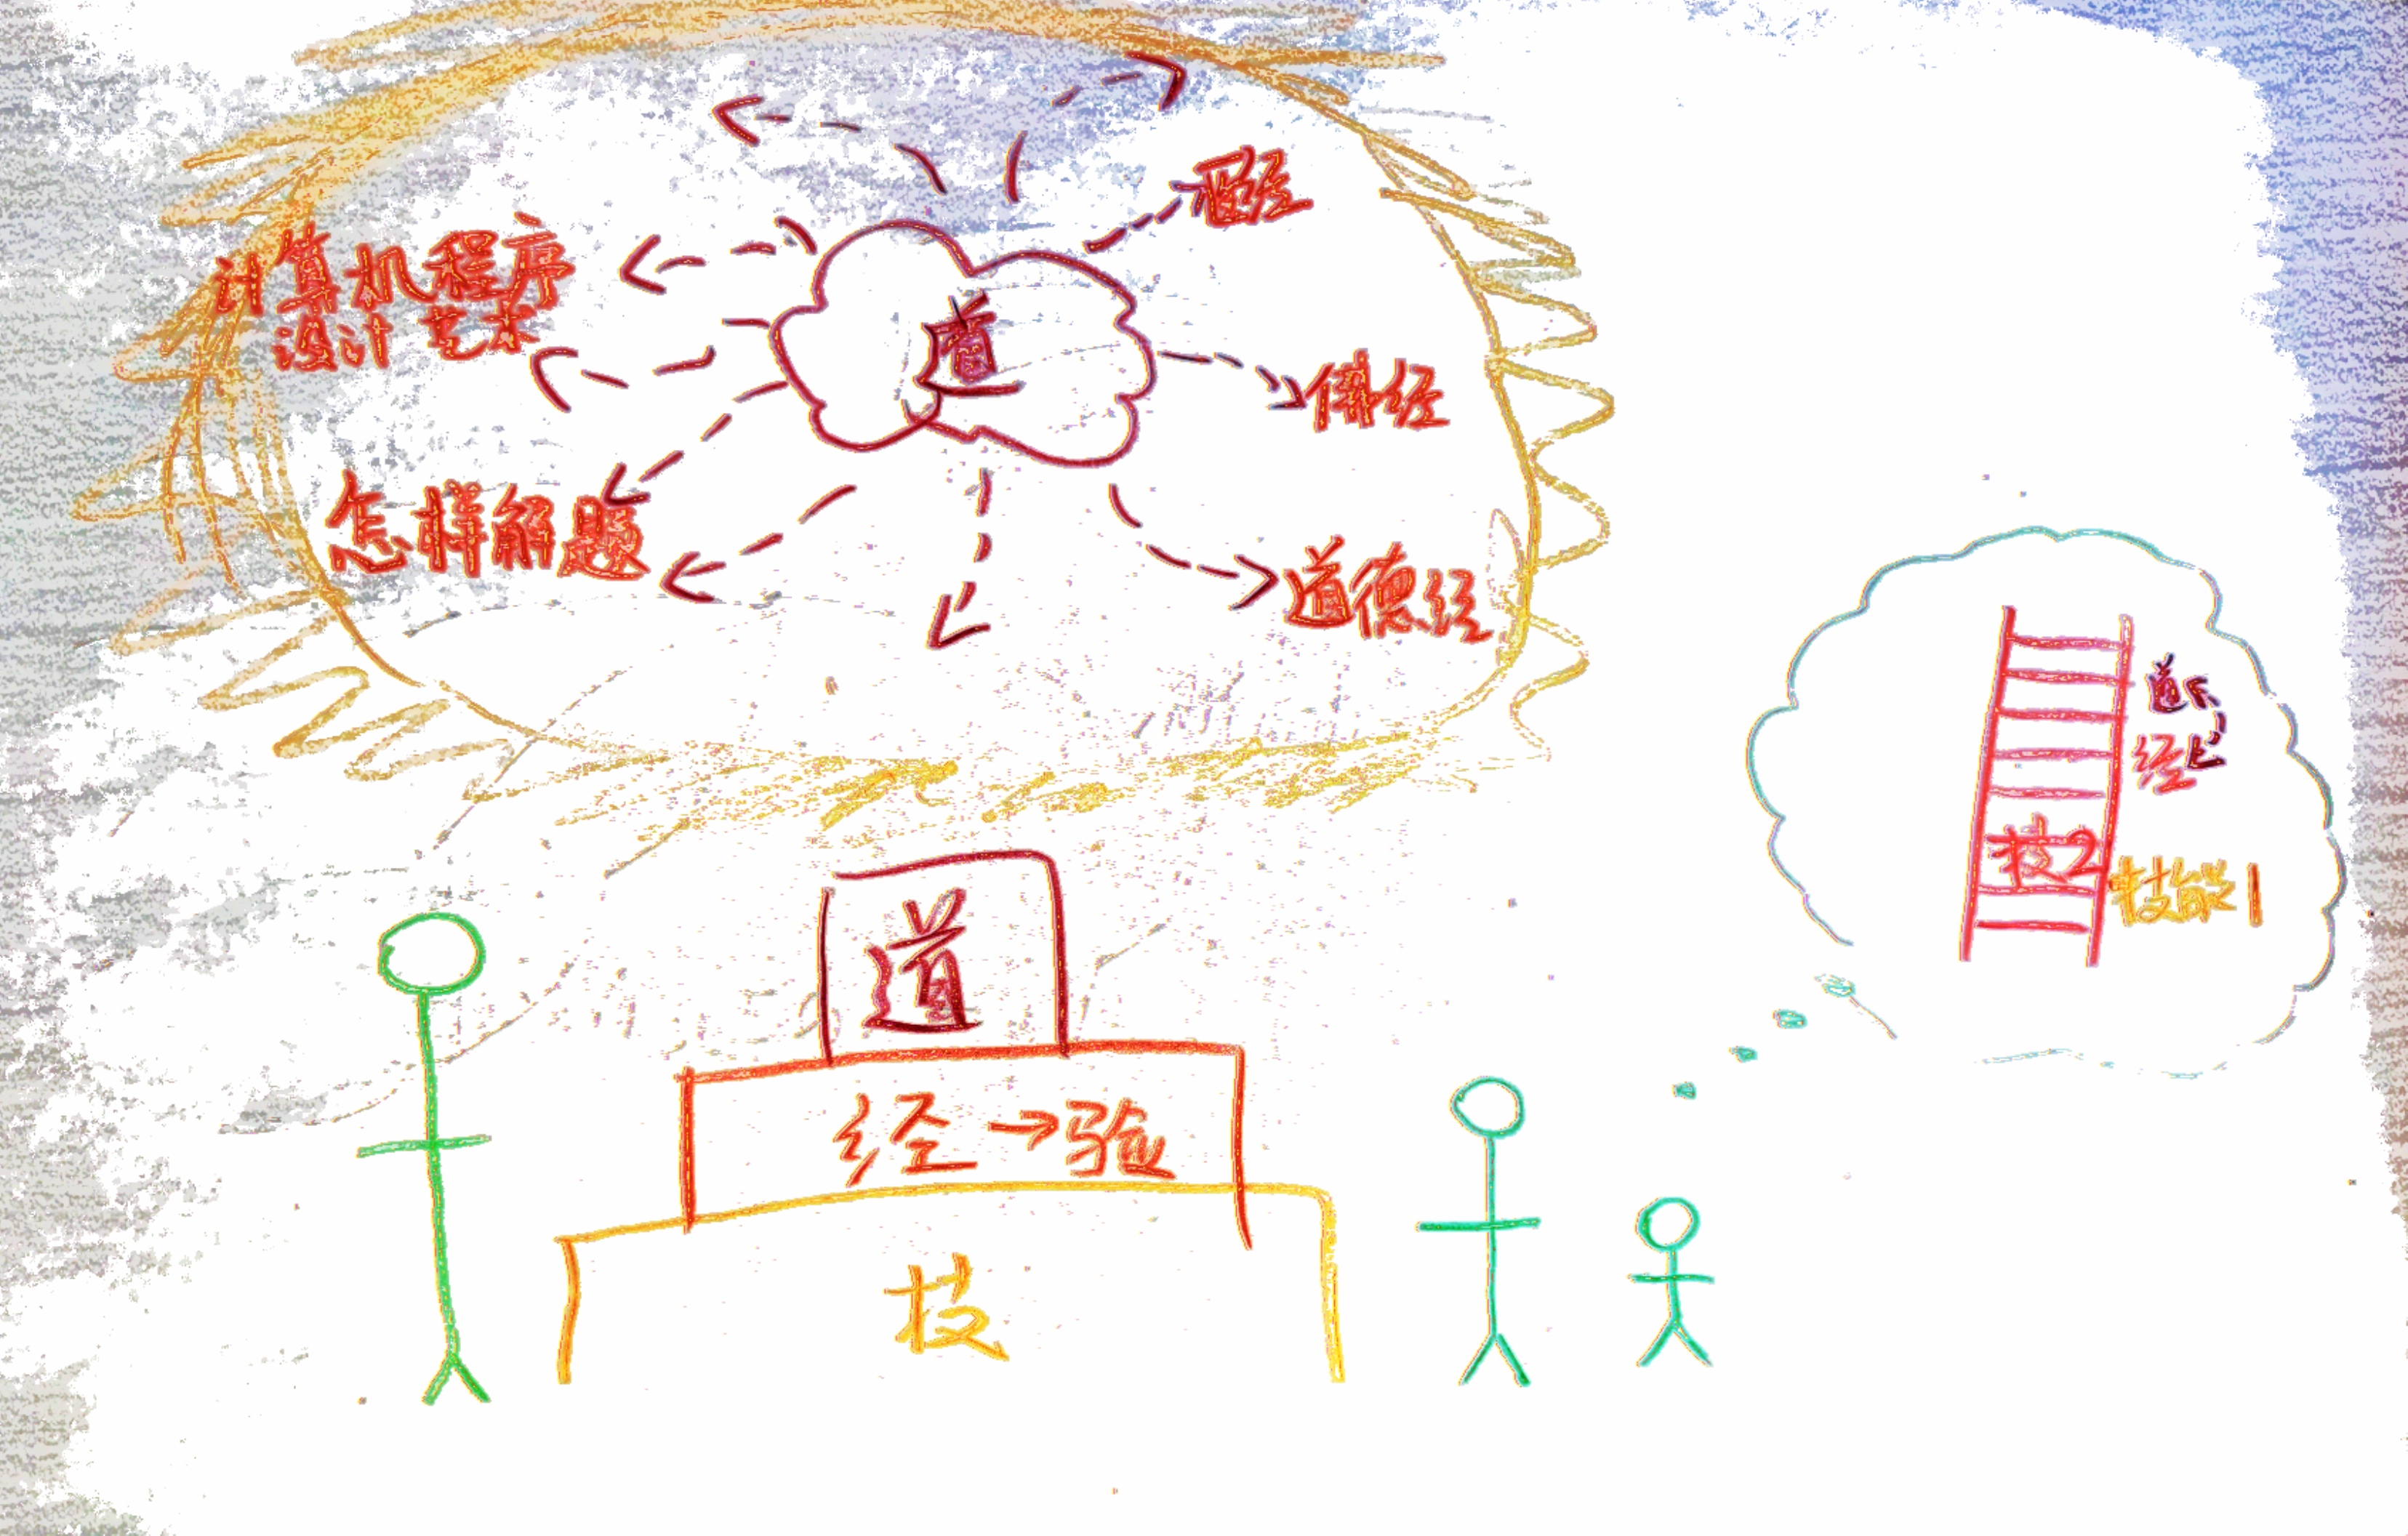 道
计算机程序
设计艺术
佛经
怎样解题
道德经
道
经
技2
技能1
道
经→验
技